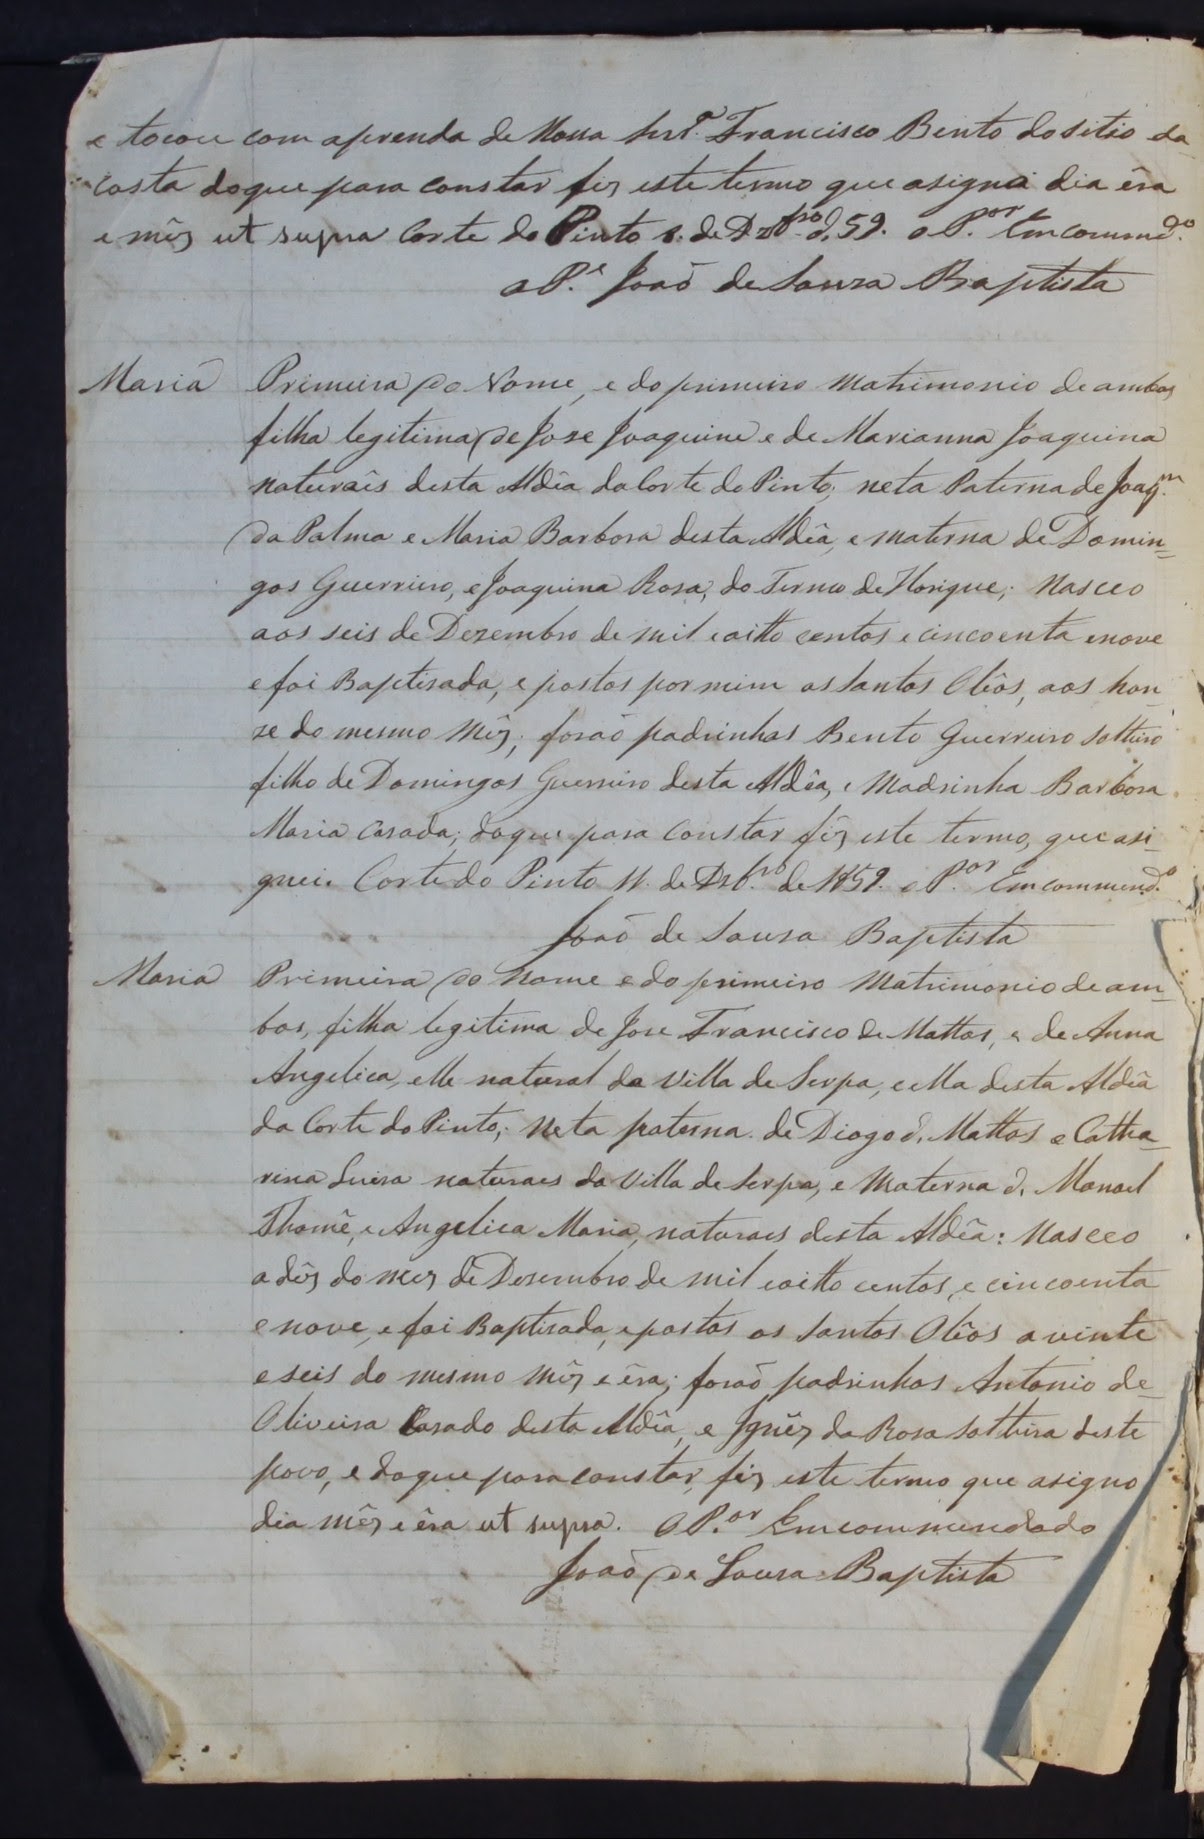 e tocou com aprenda de Nossa Snrª. Francisco Bento do sitio da
Costa do que para constar fiz este termo que asignei dia êra
e mêz ut supra Corte do Pinto 8. de Dzbro. d. 59. o P.or Emcommdo.
o P.e Joaõ de Souza Baptista
Maria Primeira do Nome, e do primeiro Matrimonio de ambos
filha legitima de Jose Joaquim e de Marianna Joaquina
naturaîs desta Aldêa da Corte do Pinto; neta Paterna de Joaqm.
da Palma e Maria Barbosa desta Aldêa, e materna de Domin=
gos Guerreiro, e Joaquina Rosa, do Termo de Horique; Nasceo
aos seis de Dezembro de mil e oitto centos e cincoenta e nove
e foi Baptisada, e postos por mim os Santos Olêos, aos hon
ze do mesmo Mêz; foraõ padrinhos Bento Guerreiro solteiro
filho de Domingos Guerreiro desta Aldêa, e Madrinha Barbora
Maria Casada; do que para constar fiz este termo, que asi-
gnei. Corte do Pinto 11. de Dzbro. de 1859. o P.or Emcommendo.
Joaõ de Sousa Baptista
Maria Primeira do Nome e do primeiro Matrimonio de am=
bos, filha legitima de Jose Francisco de Mattos, e de Anna
Angelica, elle natural da Villa de Serpa, e ella desta Aldêa
da Corte do Pinto; Neta paterna de Diogo d. Mattos e Catha-
rina Luisa naturaes da Villa de Serpa, e Materna d. Manoel
Thomê, e Angelica Maria, naturaes desta Aldêa: Nasceo
a dêz do mez de Desembro de mil e oitto centos, e cincoenta
e nove, e foi Baptisada, e postos os Santos Olêos a vinte
e seis do mesmo Mêz e êra; foraõ padrinhos Antonio de-
Oliveira Casado desta Aldêa, e Ignêz da Rosa solteira deste
povo, e do que para constar, fiz este termo que asigno
dia mêz e êra ut supra. O P.or Emcommendado
Joaõ de Sousa Baptista